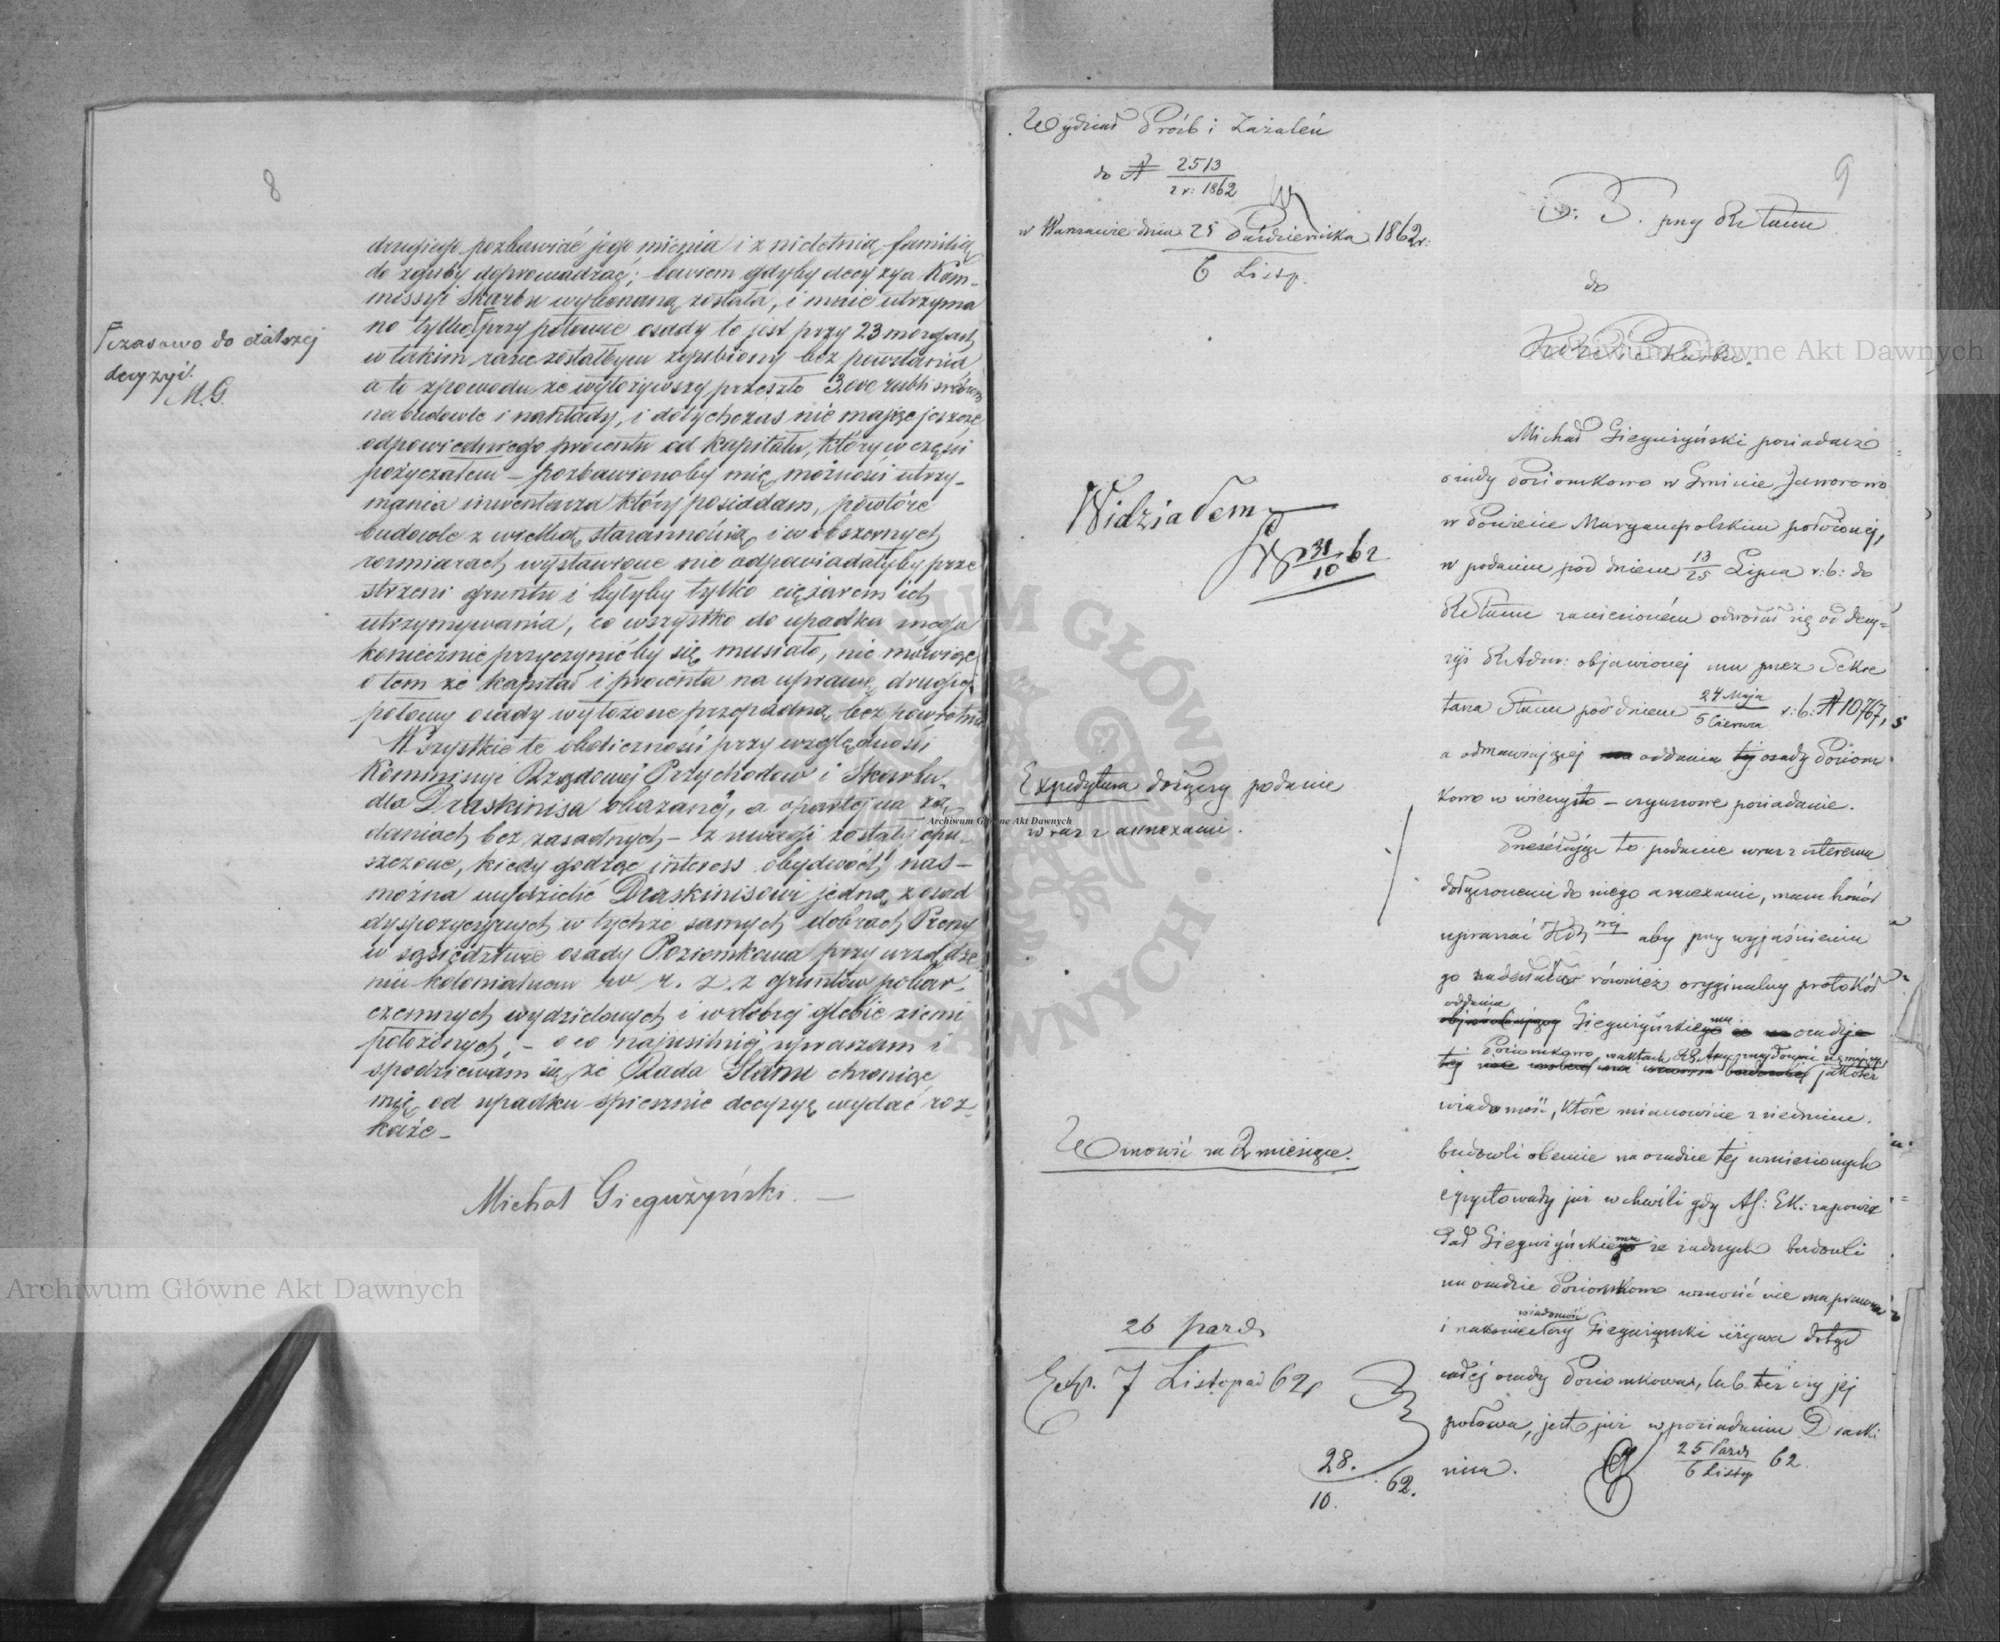 8
drugiego pozbawiać jego mienia i z nieletnią familią
do zguby doprowadzać; bowiem gdyby decyzya Kom-
missyi Skarbu wykonaną została, i mnie utrzyma
no tylko przy połowie osady to jest przy 23 morgach
w takim razie zostałbym zgubiony bez powstania
a to z powodu że wyłożywszy przeszło 3,000 rubli srebrem
na budowle i nakłady, i dotychczas nie mając jeszcze
odpowiedniego procentu od kapitału, który w części
pożyczałem – pozbawionoby mię możności utrzy-
mania inwentarza który posiadam, powtóre
budowle z wielką starannością i w obszernych
rozmiarach wystawione nie odpowiadałyby prze
strzeni gruntu i byłyby tylko ciężarem ich
utrzymywania, co wszystko do upadku mego
koniecznie przyczynićby się musiało, nie mówiąc
o tem że kapitał i procenta na uprawę drugiej
połowy osady wyłożone przepadną bez powrotnie
Wszystkie te okoliczności przy względności
Kommissyi Rządowej Przychodów i Skarbu
dla Draskinisa okazanej, a opartej na żą
daniach bezzasadnych – z uwagi zostały opu-
szczone, kiedy godząc interess obydwóch nas –
można wydzielić Draskinisowi jedną z osad
dyspozycyjnych w tychże samych dobrach Preny
w sąsiedztwie osady Poziomkowa przy urządze
niu kolonialnem w r. z. z gruntów poliar-
czemnych wydzielonych i w dobrej glebie ziemi
położonych, – o co najusilniej upraszam i
spodziewam się że Rada Stanu chroniąc
mię od upadku spiesznie decyzyę wydać roz-
każe –
Michał Giegużyński. –
czasowo do dalszej
decyzyi.
M.G.
Wydział Próśb i Zażaleń
do № 2513
z r: 1862
w Warszawie dnia 25 Października 1862 r:
6 Listop.
Widziałem
31
10 62
Expedytura dołączy podanie
wraz z annexami.
Wznowić za 2 miesiące.
26 Pazd
Exp. 7 Listopad 62
28.
10. 62.
9
S. przy RStanu
do
Skarbu.
Michał Giegużyński posiadacz
osady Poziomkowo w Gminie Jaworowo
w Powiecie Maryampolskim położonej,
w podaniu pod dniem 13/25 Lipca r: b: do
RStanu zaniesioném odwołał się od decy-
zyi RAdm: objawionej mu przez Sekre
tarza Stanu pod dniem 24 Maja / 5 Czerwca r: b: № 10767,
a odmawiającej oddania tej osady Poziom
kowo w wieczysto – czynszowe posiadanie.
Przesyłając to podanie wraz z
dołączonemi do niego annexami, mam honór
upraszać aby przy wyjaśnieniu
go nadesłać również oryginalny protokół
oddania
Giegużyńskiemu osady
Poziomkowo,
tej jakoteż
wiadomość, które mianowicie z siedmiu
budowli obecnie na osadzie tej wzniesionych
egzystowały już w chwili gdy As: Ek: zapowie
dał Giegużyńskiemu że żadnych budowli
na osadzie Poziomkowo wznosić nie ma prawa
wiadomość
i nakoniec czy Giegużyński używa dotąd
całej osady Poziomkowa, lub też czy jej
połowa, jest już w posiadaniu Draski
nisa.
25 Pazd
6 Listop 62
Archiwum Główne Akt Dawnych
Archiwum Główne Akt Dawnych
Archiwum Główne Akt Dawnych